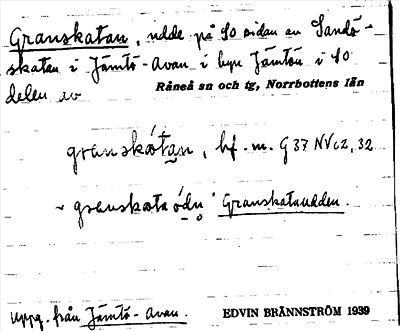 Granskatan, udde på SO sidan av Sandö-
skatan i Jämtö-Avan i byn Jämtön i SO
delen av Råneå sn och tg, Norrbottens län
granskátan, bf. m. G 37 NV c2, 32
~ granskata ódn "Granskataudden.
Uppg. från Jämtö-Avan. EDVIN BRÄNNSTRÖM 1939